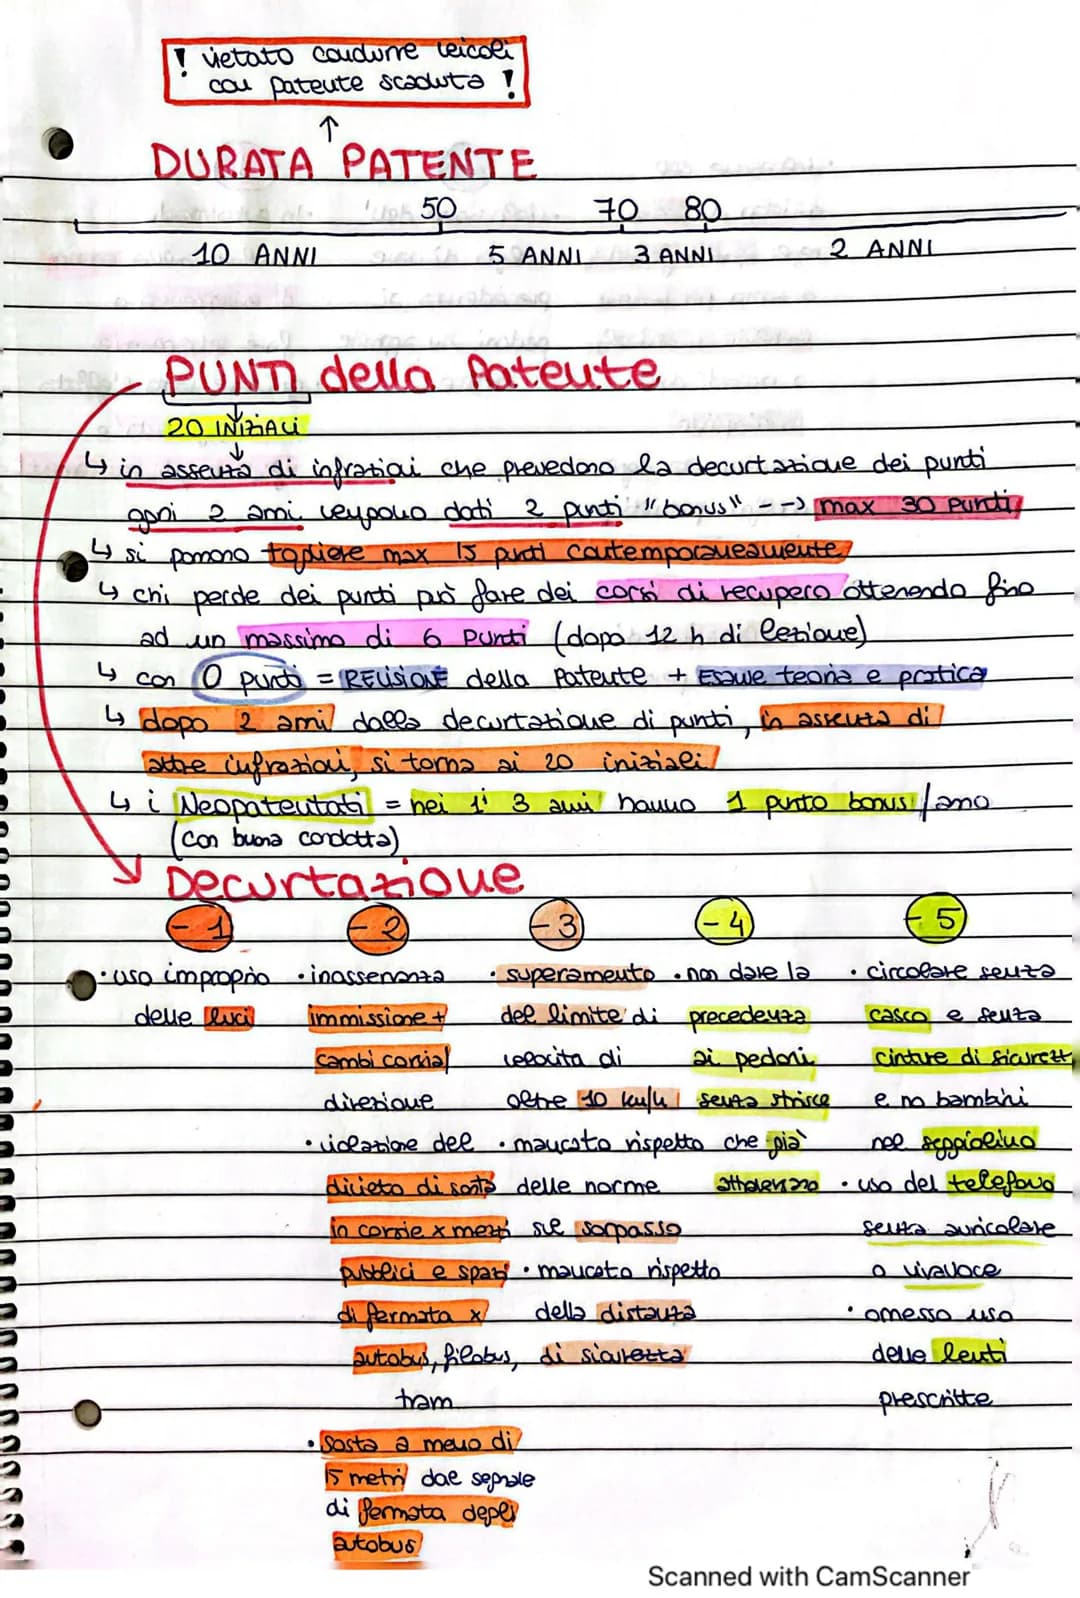 ! vietato condurre veicoli
con patente scaduta !
DURATA PATENTE
50 70 80
10 ANNI 5 ANNI 3 ANNI 2 ANNI
PUNTI della Patente
20 INIZIALI
↳ in assenza di infrazioni che prevedono la decurtazione dei punti
ogni 2 anni vengono dati 2 punti "bonus" --> max 30 punti
↳ si possono togliere max 15 punti contemporaneamente
↳ chi perde dei punti può fare dei corsi di recupero ottenendo fino
ad un massimo di 6 punti (dopo 12 h di lezione)
↳ con 0 punti = REVISIONE della Patente + Esame teoria e pratica
↳ dopo 2 anni dalla decurtazione di punti, in assenza di
altre infrazioni, si torna ai 20 iniziali
↳ i Neopatentati = nei 1ⁱ 3 anni hanno 1 punto bonus/anno
(con buona condotta)
Decurtazione
-1
• uso improprio
delle luci
-2
• inosservanza
immissione +
cambi corsia/
direzione
• violazione del
divieto di sosta
in corsie x mezzi
pubblici e spazi
di fermata x
autobus, filobus,
tram
• sosta a meno di
15 metri dal segnale
di fermata degli
autobus
-3
• superamento
del limite di
velocita di
oltre 10 km/h
• mancato rispetto
delle norme
sul sorpasso
• mancato rispetto
della distanza
di sicurezza
-4
• non dare la
precedenza
ai pedoni
senza strisce
che già
attraversano
-5
• circolare senza
casco e senza
cinture di sicurezz
e no bambini
nel seggiolino
• uso del telefono
senza auricolare
o vivavoce
• omesso uso
delle lenti
prescritte
Scanned with CamScanner